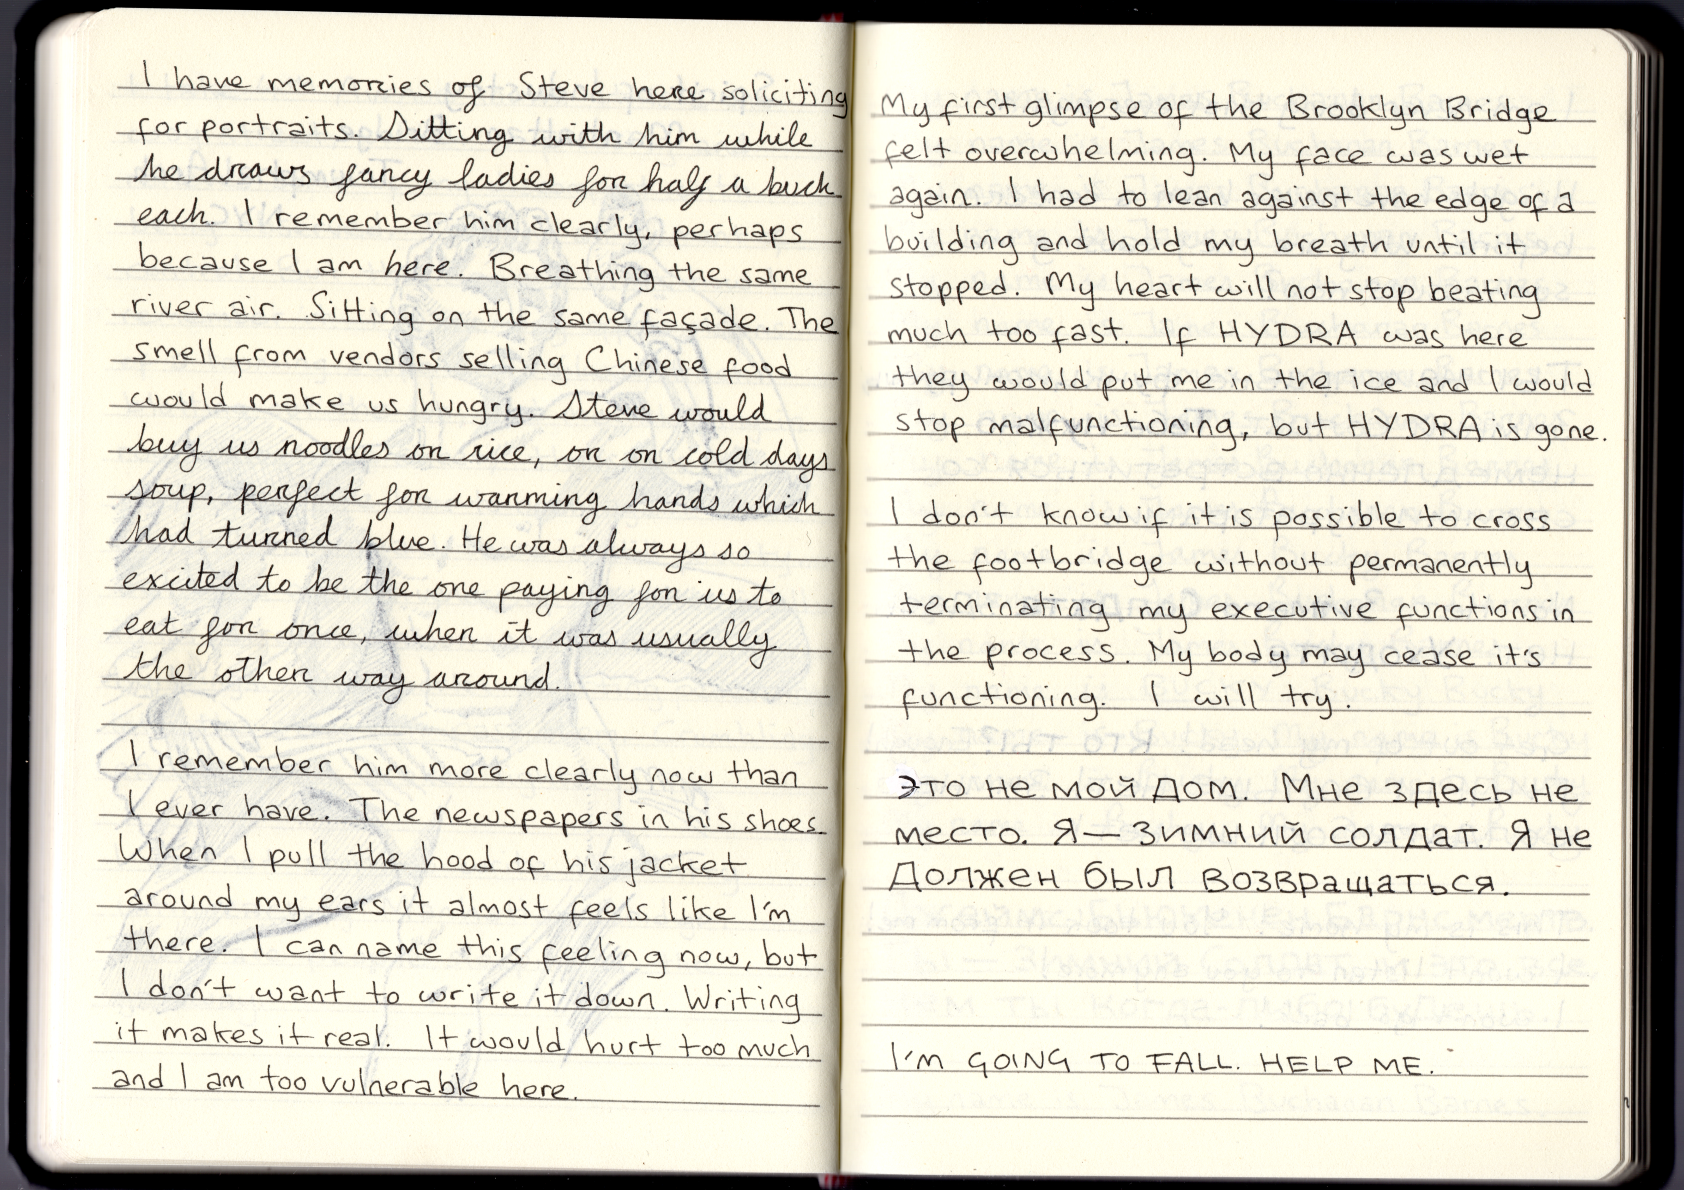 I have memories of Steve here soliciting
for portraits. Sitting with him while
he draws fancy ladies for half a buck
each. I remember him clearly, perhaps
because I am here. Breathing the same
river air. Sitting on the same façade. The
smell from vendors selling Chinese food
would make us hungry. Steve would
buy us noodles or rice, or on cold days
soup, perfect for warming hands which
had turned blue. He was always so
excited to be the one paying for us to
eat for once, when it was usually
the other way around.
I remember him more clearly now than
I ever have. The newspapers in his shoes.
When I pull the hood of his jacket
around my ears it almost feels like I'm
there. I can name this feeling now, but
I don't want to write it down. Writing
it makes it real. It would hurt too much
and I am too vulnerable here.
My first glimpse of the Brooklyn Bridge
felt overwhelming. My face was wet
again. I had to lean against the edge of a
building and hold my breath until it
stopped. My heart will not stop beating
much too fast. If HYDRA was here
they would put me in the ice and I would
stop malfunctioning, but HYDRA is gone.
I don't know if it is possible to cross
the footbridge without permanently
terminating my executive functions in
the process. My body may cease it's
functioning. I will try.
Это не мой дом. Мне здесь не
место. Я — зимний солдат. Я не
Должен был возвращаться.
I'M GOING TO FALL. HELP ME.